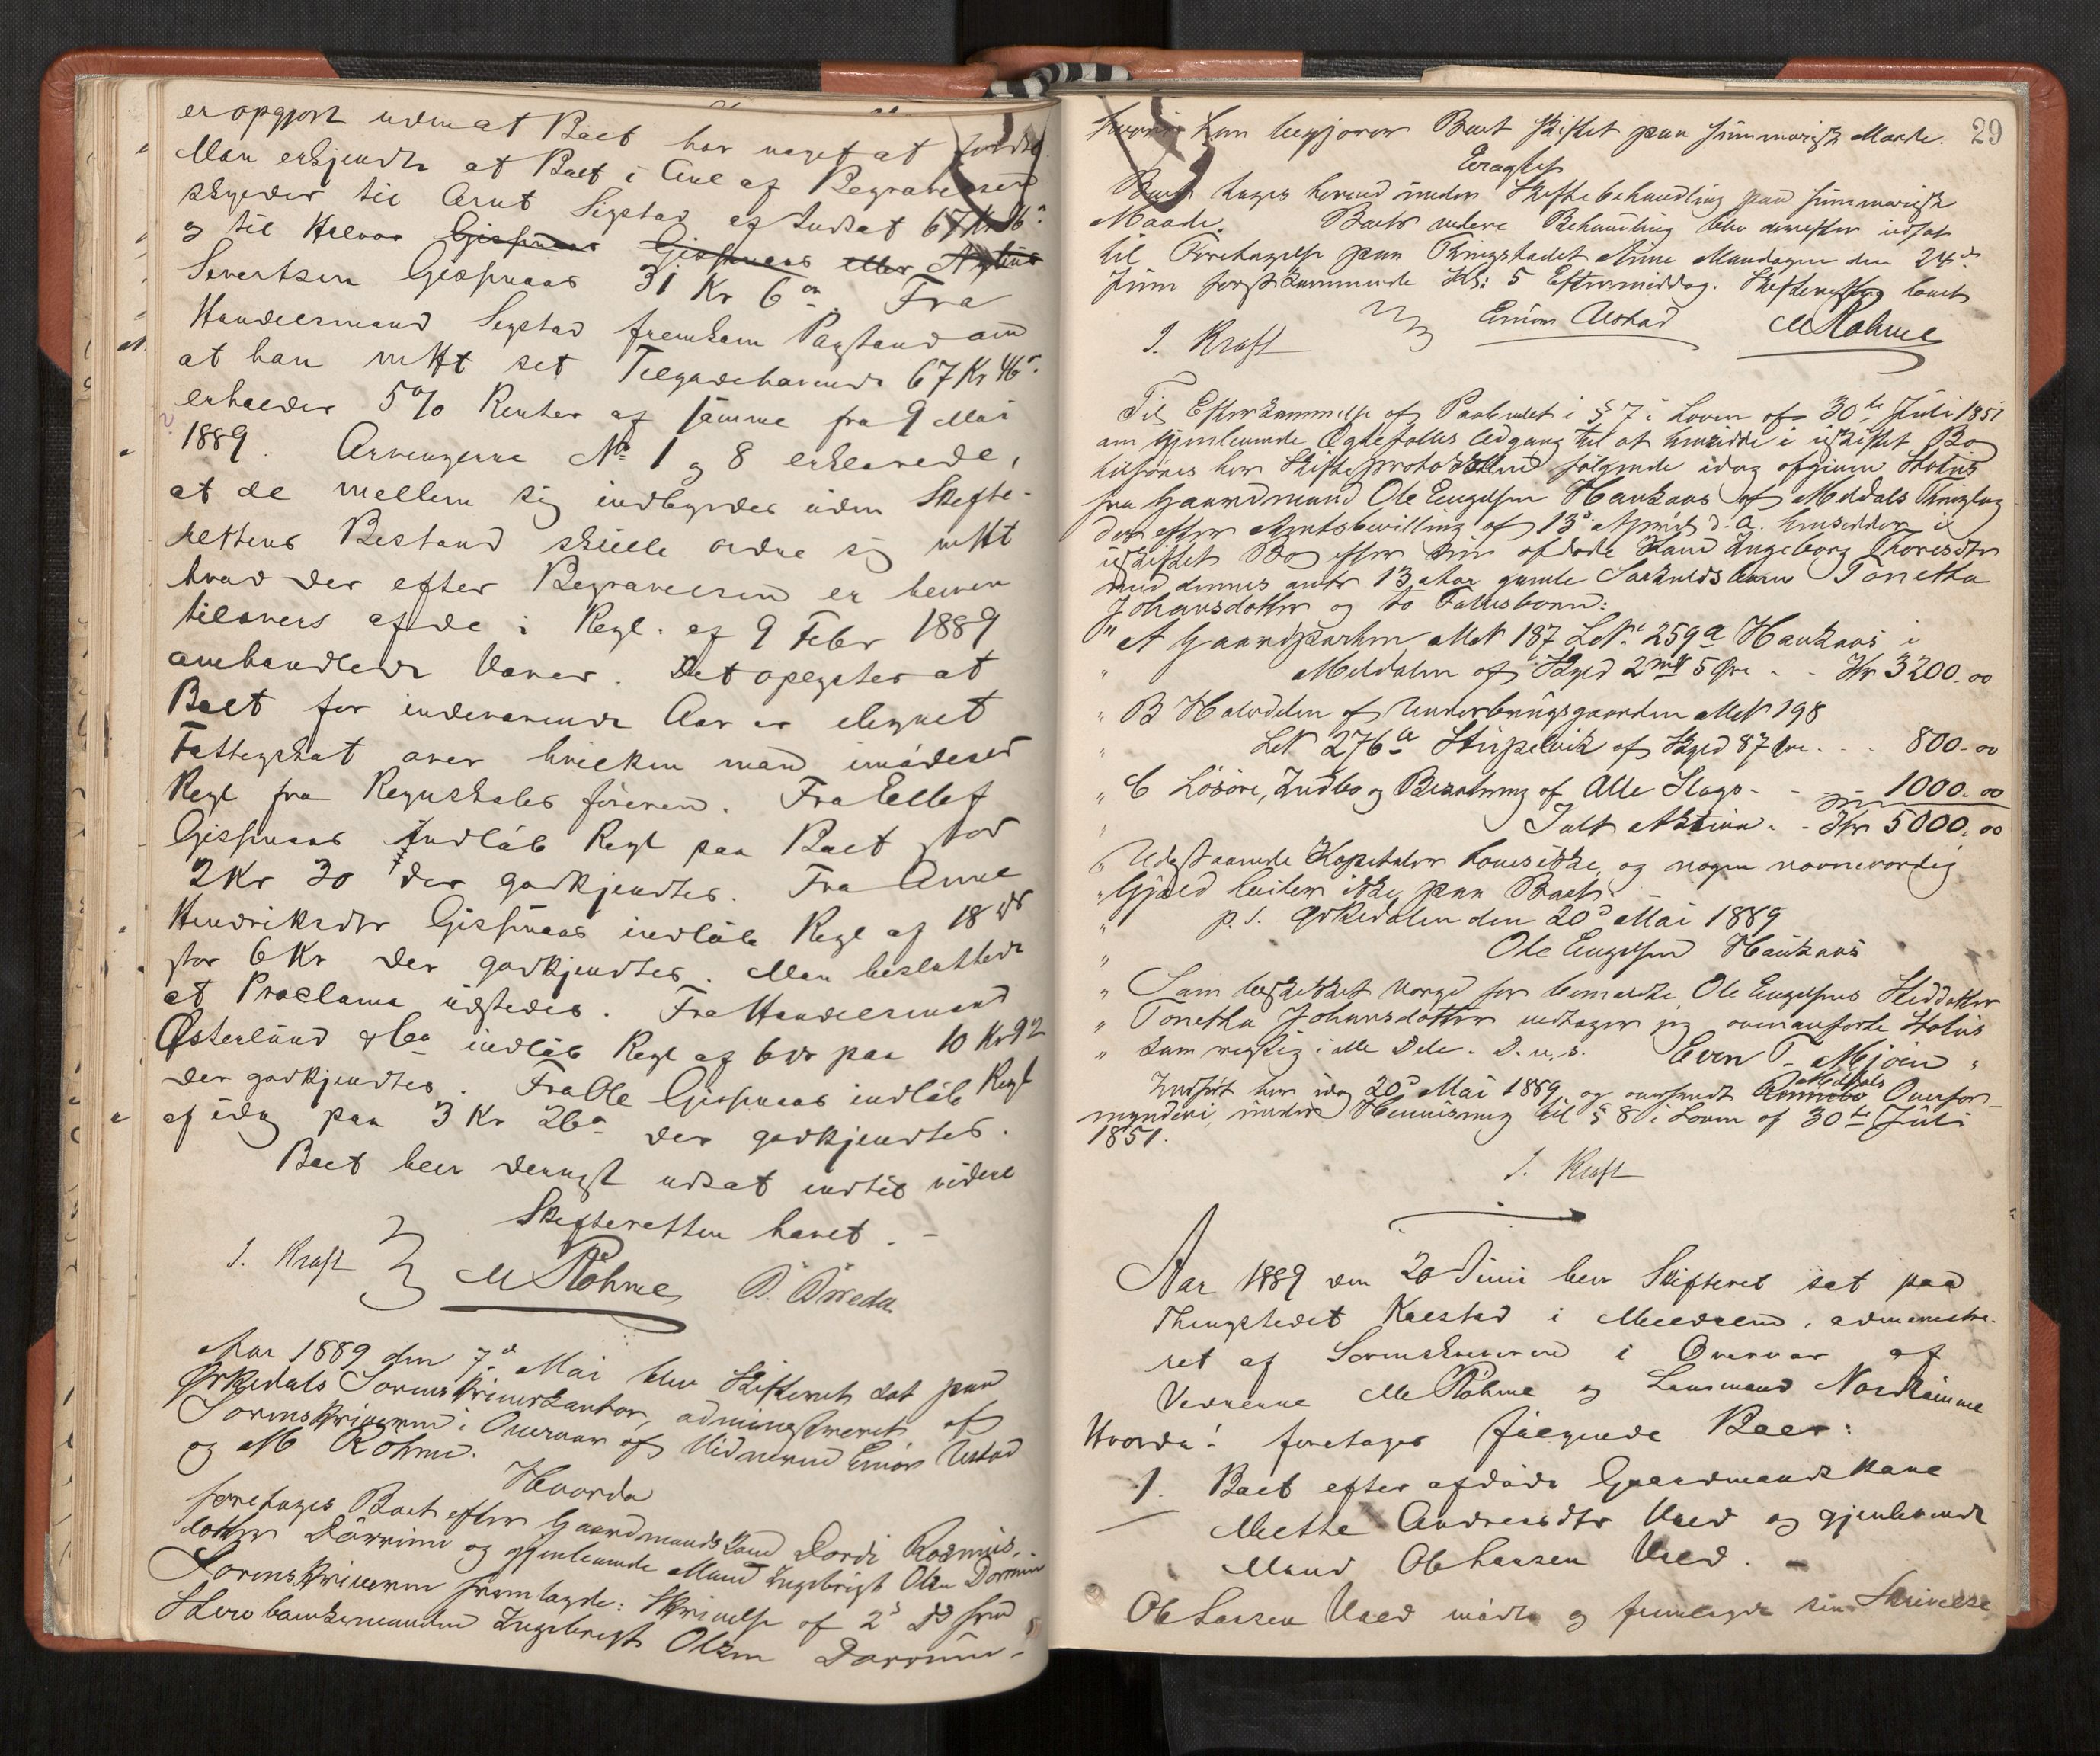 er opgjort uden at Boet har noget at fordre.
Man erkjendte at Boet i Anl af Begravelsen
skyder til Arnt Sigstad af Indsat 67 Kr 46 ø
og til Halvor Gisnaas Gisnaas eller
Sivertsen Gisnaas 31 Kr 6 ør. Fra
Handelsmand Sigstad fremkom Paastand om
at han mHt sit Tilgodehavende 67 Kr 46 ø.
erholder 5% Renter af samme fra 9 Mai
1889. Arvingerne No 1 og 8 erklærede,
at de mellem sig indbyrdes uden Skifte-
rettens Bistand skulle ordne sig mHt
hvad der efter Begravelsen er bleven
tilovers af de i Regl. af 9 Febr 1889
omhandlede Varer. Det oplystes at
Boet for indeværende Aar er ilignet
Fattigskat over hvilken man imødeser
Regl fra Regnskabsføreren. Fra Ellef
Gisnaas indløb Regl paa Boet stor
2 Kr 30 der godkjendtes. Fra Anne
Hendriksdtr Gisnaas indløb Regl af 18 ds
stor 6 Kr der godkjendtes. Man besluttede
at Proclama udstedes. Fra Handelsmand
Østerlund & Co indløb Regl af 6 ds paa 10 Kr 92
der godkjendtes. Fra Ole Gisnaas indløb Regl
af idag paa 3 Kr 26 ø der godkjendtes.
Boet blev dernæst udsat indtil videre
Skifteretten hævet.
I. Kraft M Röhme
Aar 1889 den 7d Mai blev Skifteret sat paa
Ørkedals Sorenskriverkontor, administreret af
Sorenskriveren i Overvær af Vidnerne Einar Ustad
og M Röhme.
Hvorda
foretages Boet efter Gaardmandskone Dordi Rasmus-
datter Dørrum og gjenlevende Mand Ingebrigt Olsen Dørrum
Sorenskriveren fremlagde: Skrivelse af 2d ds fra
Skrobankemanden Ingebrigt Olsen Dørrum-
29
hvori han begjærer Boet skiftet paa summarisk Maade.
Eragtet
Boet tages herved under Skiftebehandling paa summarisk
Maade. Boets videre Behandling blev derefter udsat
til Foretagelse paa Thingstedet Aune Mandagen den 24de
Juni førstkommende Kl: 5 Eftermiddag. Skifteretten hævet
I. Kraft Einar Ustad M Röhme
Til Efterkommelse af Paabudet i § 7 i Loven af 30te Juli 1851
om gjenlevende Ægtefolks Adgang til at hensidde i uskiftet Bo
tilføres her Skifteprotokollen følgende idag afgiven Status
fra Gaardmand Ole Engelsen Haukaas af Meldals Thinglag
der efter Amtsbevilling af 13d April d. A. hensidder i
uskiftet Bo efter sin afdøde Kone Ingeborg Thoresdtr
med dennes 13 Aar gamle Særkuldsbarn Tonetha
Johansdatter og to Fællesbørn:
" A Gaardparten MNr 187 LNr 259a Haukaas i
" Meldalen af Skyld 2 mk 5 Øre - - Kr 3200.00
" B Halvdelen af Underbrugsgaarden MNr 198
" LNr 276a af Skyld 87 Øre - - - 800-00
" C Løsøre, Indbo og Besætning af Alle Slags - - - 1000.00
" Ialt Aktiva. - Kr 5000.00
" Udestaaende Kapitaler haves ikke, og nogen nævneværdig
" Gjæld hviler ikke paa Boet.
" p. t. Ørkedalen den 20d Mai 1889
" Ole Engelsen Haukaas
" Som beskikket Værge for bemeldte Ole Engelsens Steddatter
" Tonetha Johansdatter vedtager jeg ovenanførte Status
" som rigtig i alle Dele. D. u. s. Even T. Mjøen "
Indført her idag 20d Mai 1889 og oversendt Rennebo Meldals Overfor-
mynderi under Henvisning til § 8 i Loven af 30te Juli
1851.
I. Kraft
Aar 1889 den 20 Juni blev Skifteret sat paa
Thingstedet Kalstad i Meldalen, administre-
ret af Sorenskriveren i Overvær af
Vidnerne M Röhme og Lensmand Nordhimme
Hvorda: foretages følgende Boer:
1. Boet efter afdøde Gaardmandskone
Mette Andersdtr Uled og gjenlevende
Mand Ole Larsen Uled. -
Ole Larsen Uled mødte og fremlagde sin Skrivelse